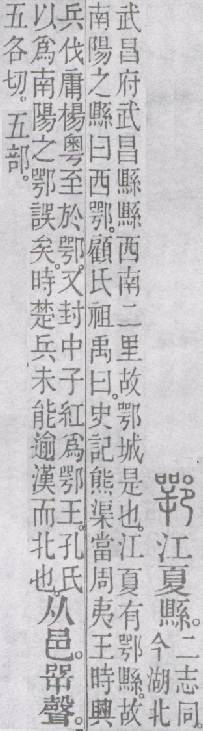 鄂江夏縣。二志同。
今湖北
武昌府武昌縣縣西南二里故鄂城是也。江夏有鄂縣。故
南陽之縣曰西鄂。顧氏祖禹曰。史記熊渠當周夷王時興
兵伐庸楊粵至於鄂。又封中子紅爲鄂王。孔氏
以爲南陽之鄂誤矣。時楚兵未能逾漢而北也。从邑。㖾聲。
五各切。五部。